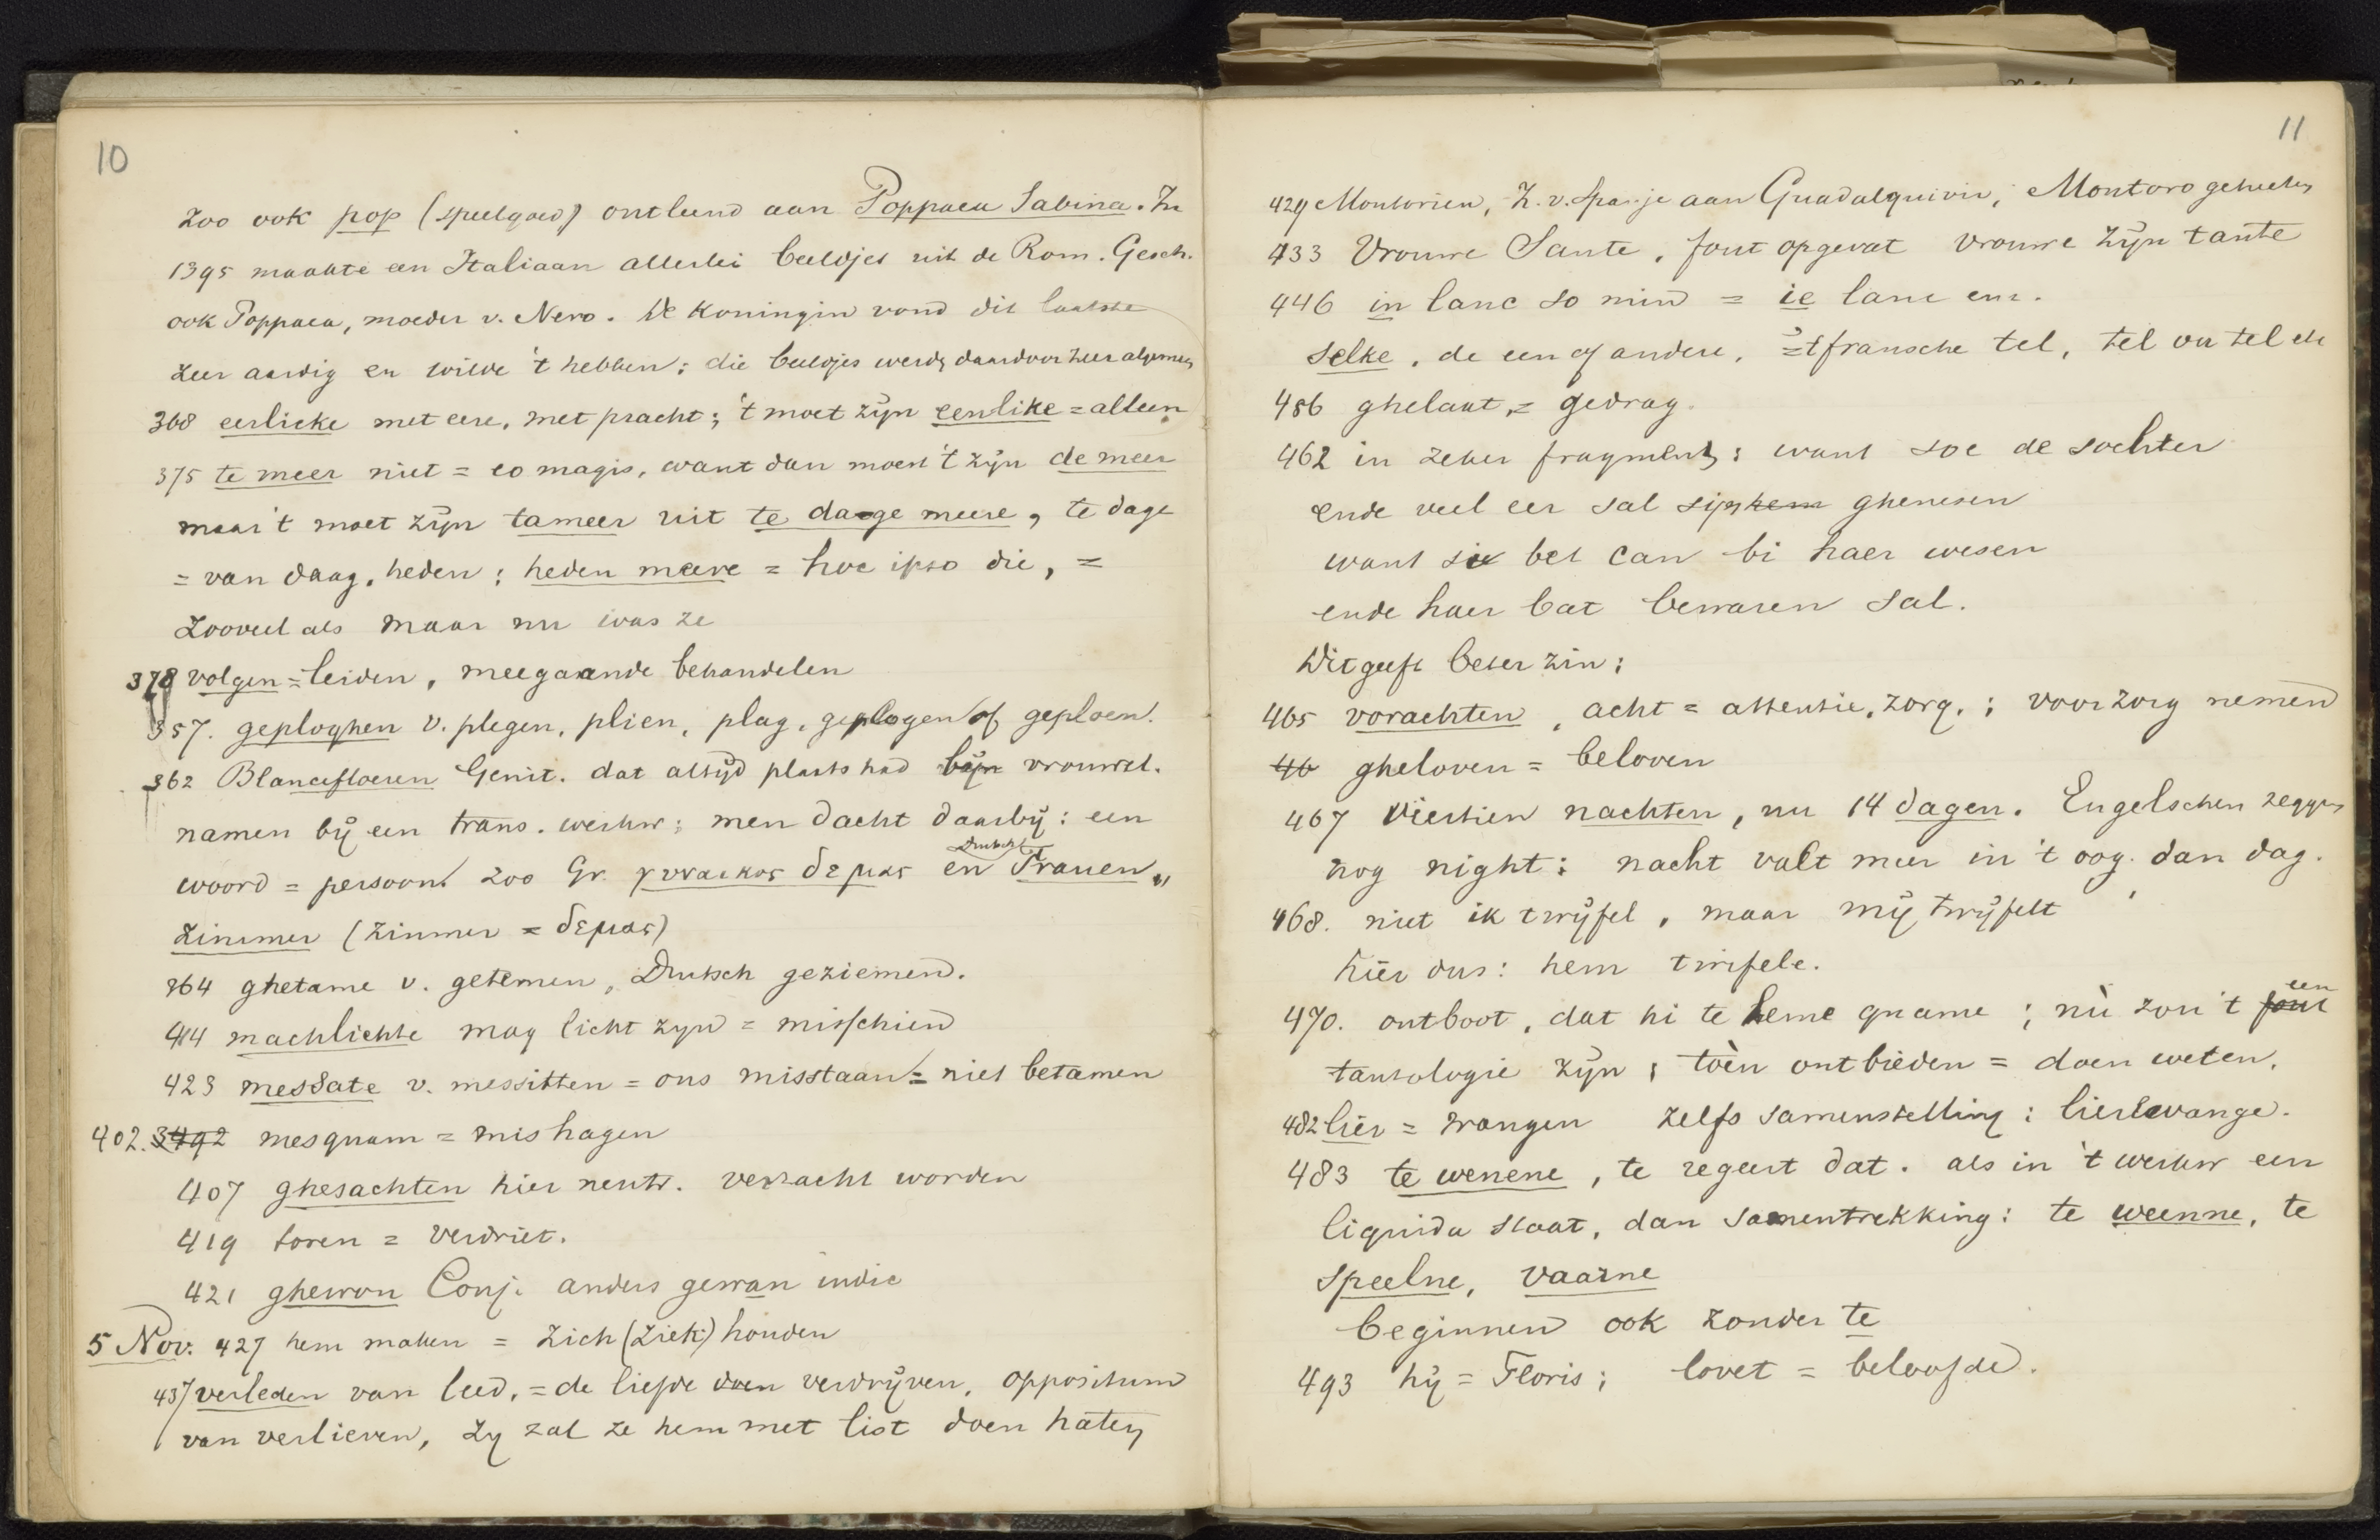 10
zoo ook pop (speelgoed) ontleend aan Poppaea Sabina. In
1395 maakte een Italiaan allerlei beeldjes uit de Rom. Gesch.
ook Poppaea, moeder v. Nero. De Koningin vond dit laatste
zeer aardig en wilde 't hebben; die beeldjes werden daardoor zeer algemeen
368 eerlicke met eere, met pracht; 't moet zijn eenlike = alleen
375 te meer niet = eo magis, want dan moest 't zijn de meer
maar 't moet zijn tameer uit te dage meere, te dage
= van daag, heden; heden meere = hoc ipso die, =
zooveel als maar nu was ze
378 volgen = leiden, meegaande behandelen
357. geploghen v. plegen, plien, plag, geplogen of geploen.
362 Blancefloeren Genit. dat altijd plaats had bijn vrouwel.
namen bij een trans. werkw; men dacht daarbij: een
woord = persoon! zoo Gr. γυναικος δεμας en Duitsch Frauen„
zimmer (zimmer = δεμας)
364 ghetame v. getemen, Duitsch geziemen.
414 machlichte mag licht zyn = misschien
423 messate v. messitten = ons misstaan = niet betamen
402. 3492 mesquam = mishagen
407 ghesachten hier neutr. verzacht worden
419 toren = verdriet.
421 ghewon Conj. anders gewan indic
5 Nov. 427 hem maken = zich (ziek) houden
437 verleden van leed, = de liefde doen verdrijven, oppositum
van verlieven, zy zal ze hem met list doen haten
11
429 Montorien, Z. v. Spanje aan Guadalquivir, Montoro geheeten
433 Vrouwe Sante, fout opgevat vrouwe zijn tante
446 in lanc so min = ie lanc enz.
selke, de een of andere, = 't fransche tel, tel ou tel etc
456 ghelaat, = gedrag.
462 in zeker fragment: want soe de sochter
ende veel eer sal sijn hem ghenesen
want sie bet can bi haer wesen
ende haer bat bewaren sal.
Dit geeft beter zin:
465 vorachten, acht = attentie, zorg.; voorzorg nemen
46 gheloven = beloven
467 viertien nachten, nu 14 dagen. Engelschen zeggen
nog night: nacht valt meer in 't oog dan dag.
468. niet ik twijfel, maar mij twijfelt
hier dus: hem twifele.
470. ontboot, dat hi te heme quame; nù zou 't fout een
tautologie zijn; toèn ontbieden = doen weten.
482 lier = wangen zelfs samenstelling: lierlewange.
483 te wenene, te regeert dat. als in 't werkw een
liquida staat, dan samentrekking: te weenne, te
speelne, vaarne
beginnen ook zonder te
493 hij = Floris; lovet = beloofde.